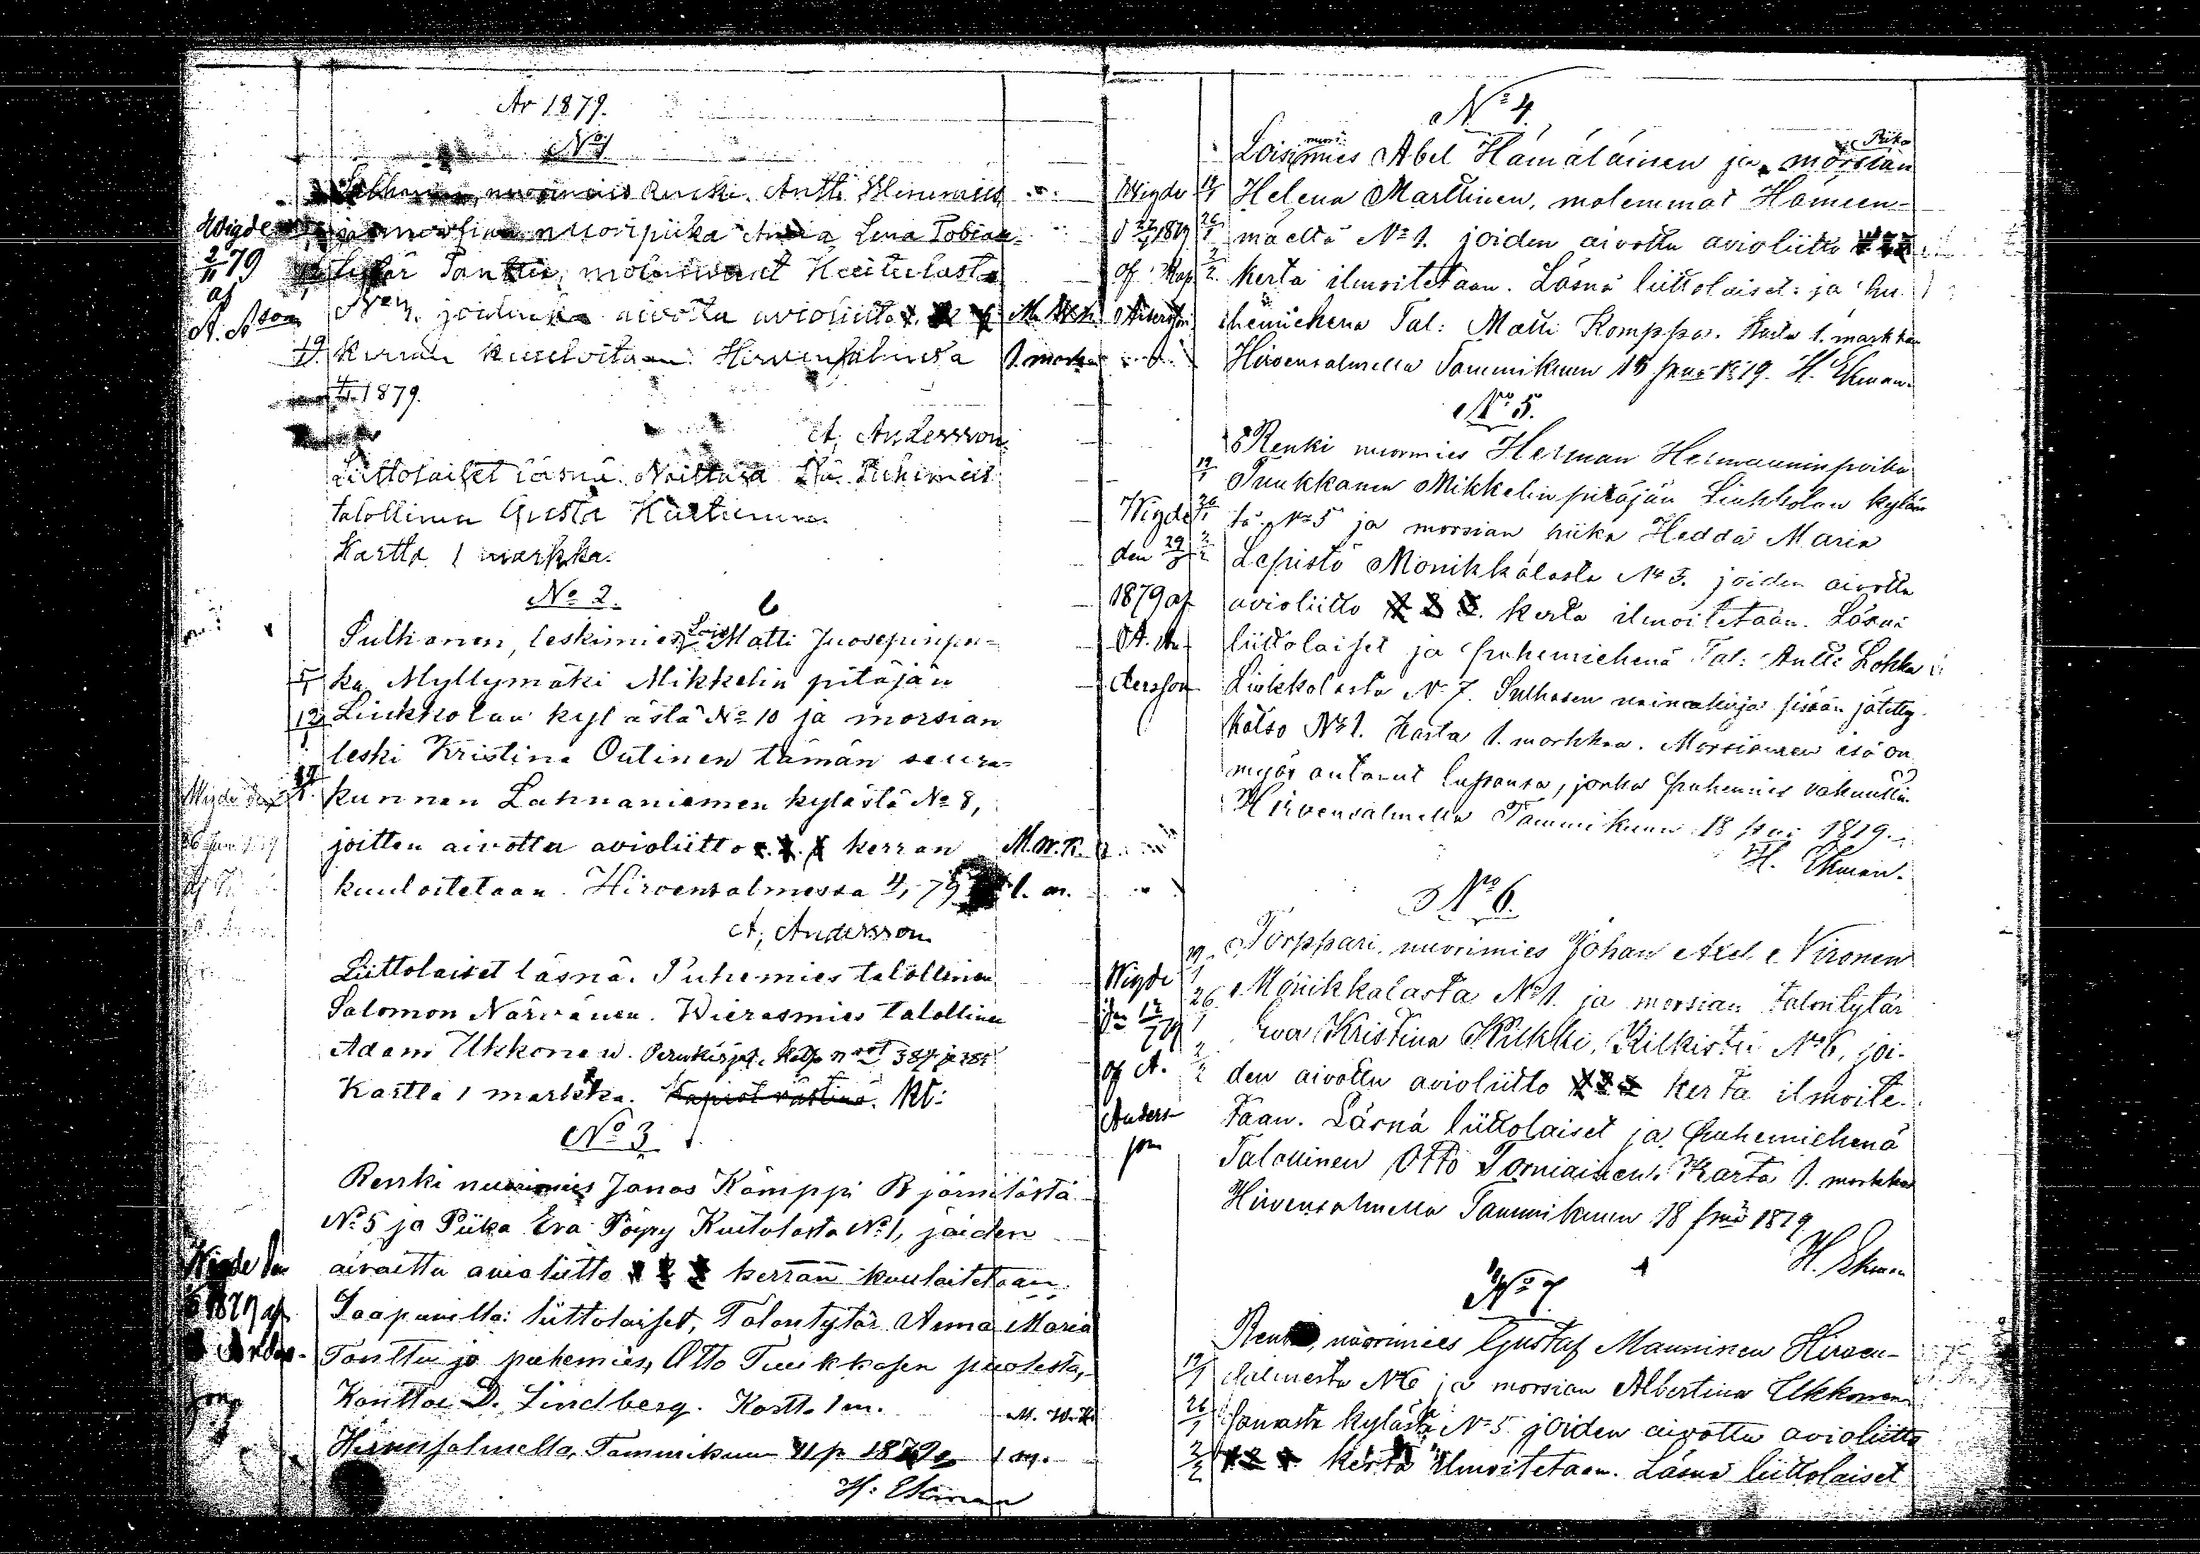 År 1879.
No 1
Sulhanen, nuorimies renki Antti Himmies
ja morsian nuoripiika Anna Lena Tobiaan-
tytär Tanttu, molemmat Kuitulasta
joiden aivottu avioliitto
kerran kuuloitetaan Hirvensalmessa
4/1 1879.
A. Andersson
Liittolaiset läsnä. Puhemies
talollinen Gusta
Kartta 1 markka.
Wigde
2/11 79
af
A. Ason
19/1
M. W. K.
1. markka
No 2.
Sulhanen, leskimies Lois Matti Juosepinpoi-
ka Myllymäki Mikkelin pitäjän
Liukkolan kylästä No 10 ja morsian
leski Kristina Outinen tämän seura-
kunnan Lahnaniemen kylästä No 8,
joitten aivottu avioliitto 1. 2. 3 kerran
kuuloitetaan. Hirvensalmessa 4/1 79
A. Andersson
Liittolaiset läsnä. Puhemies talollinen
Salomon Närvänen. Wierasmies talollinen
Adam Ukkonen. Perukirja, Katso 387 ja 385
Kartta 1 markka. Kt:
5/1
12/1
19/1
M. W. K.
1. m.
No 3
Renki nuorimies Jonas Kämppi Björnilästä
No 5 ja Piika Eva Pöyry Kuitulasta No 1, joiden
aivottu avioliitto 1 2 3 kerran kuuloitetaan.
Saapuvilla: liittolaiset, Talontytär Anna Maria
Tonttu ja puhemies, Otto Tuukkasen puolesta,
Konttor D. Lindberg. Kartt. 1 m.
Hirvensalmella, Tammikuun 11 p 1879
H. Ekman
Wigde den
1879 af
Anders-
son
M. W. K.
1 m.
No 4.
Loisnuorimies Abel Hämäläinen ja Piika morsian
Helena Marttinen, molemmat Hämeen-
mäeltä No 1. joiden aivottu avioliitto 1 2 3
kerta ilmoitetaan. Läsnä liittolaiset ja pu-
hemiehenä Tal: Matti Komppa. Karta 1. markka
Hirvensalmella Tammikuun 18 p:nä 1879. H. Ekman.
Wigde
1879
af Kap
Anderson
19/1
26/1
2/2
No 5.
Renki nuorimies Herman Hermanninpoika
Tuukkanen Mikkelin pitäjän Liukkolan kyläs-
tä No 5 ja morsian piika Hedda Maria
Lepistö Monikkalasta No 3. joiden aivottu
avioliitto 1 2 3. kerta ilmoitetaan. Läsnä
liittolaiset ja puhemiehenä Tal: Antti Lohko
Liukkolasta No 7. Sulhasen nainakirja sisään jätetty
katso No 1. Karta 1. markkaa. Morsiamen isä on
myös antanut lupansa, jonka puhemies vakuutti.
Hirvensalmella Tammikuun 18 p:nä 1879.
H. Ekman.
19/1
26/1
2/2
Wigde
den
1879 af
A. An-
dersson
No 6.
Torppari, nuorimies Johan Axel Nironen
Monikkalasta No 1. ja morsian Talontytär
Eva Kristina Kilkki, Kilkistä No 6, joi-
den aivottu avioliitto 1 2 3 kerta ilmoite-
taan. Läsnä liittolaiset ja puhemiehenä
Talollinen Otto Torniainen. Karta 1. markka
Hirvensalmella Tammikuun 18 p:nä 1879
H. Ekman
19/1
26/1
2/2
Wigde
af A.
Anders-
son
No 7.
Renki, nuorimies Gustaf Manninen Hirven-
salmesta No 6 ja morsian Albertina Ukkonen
kylästä No 5 joiden aivottu avioliitto
1 2 3 kerta ilmoitetaan. Läsnä liittolaiset
19/1
26/1
2/2